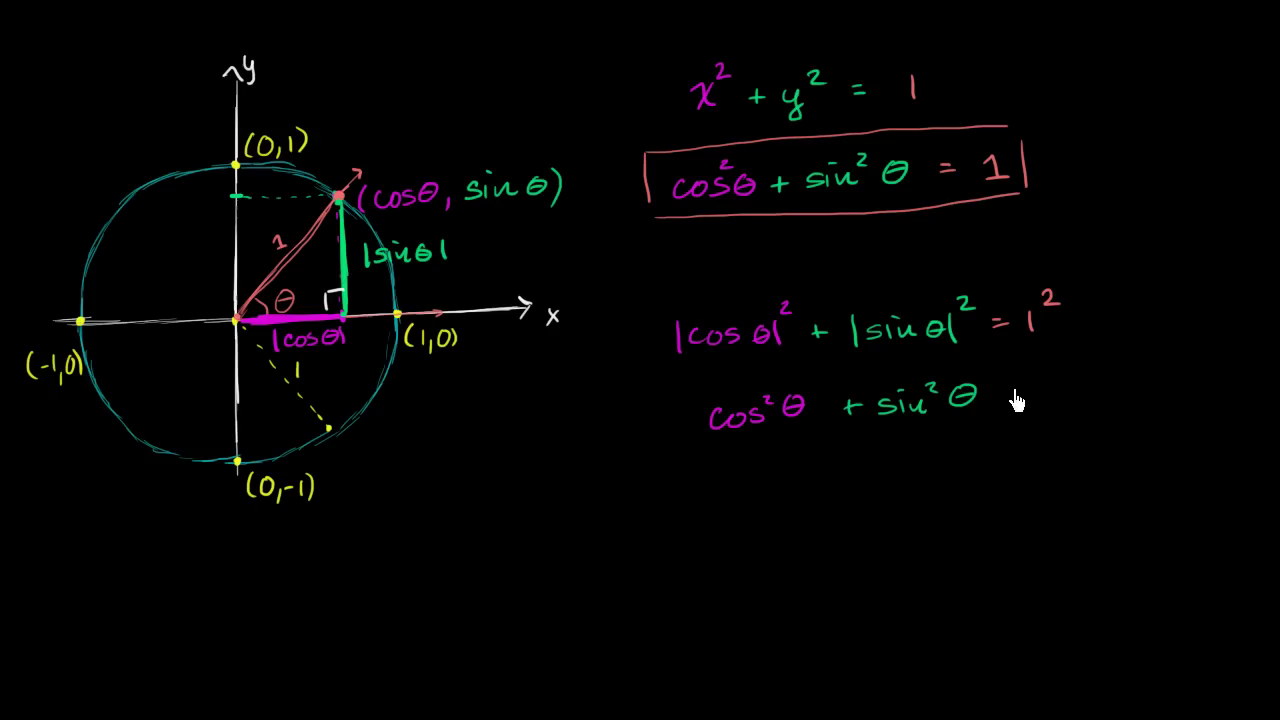 y
(0,1)
(cosθ, sin θ)
1
|sin θ|
θ
x
|cosθ|
(1,0)
(-1,0)
1
(0,-1)
x² + y² = 1
cos²θ + sin² θ = 1
|cos θ|² + |sin θ|² = 1²
cos² θ + sin² θ